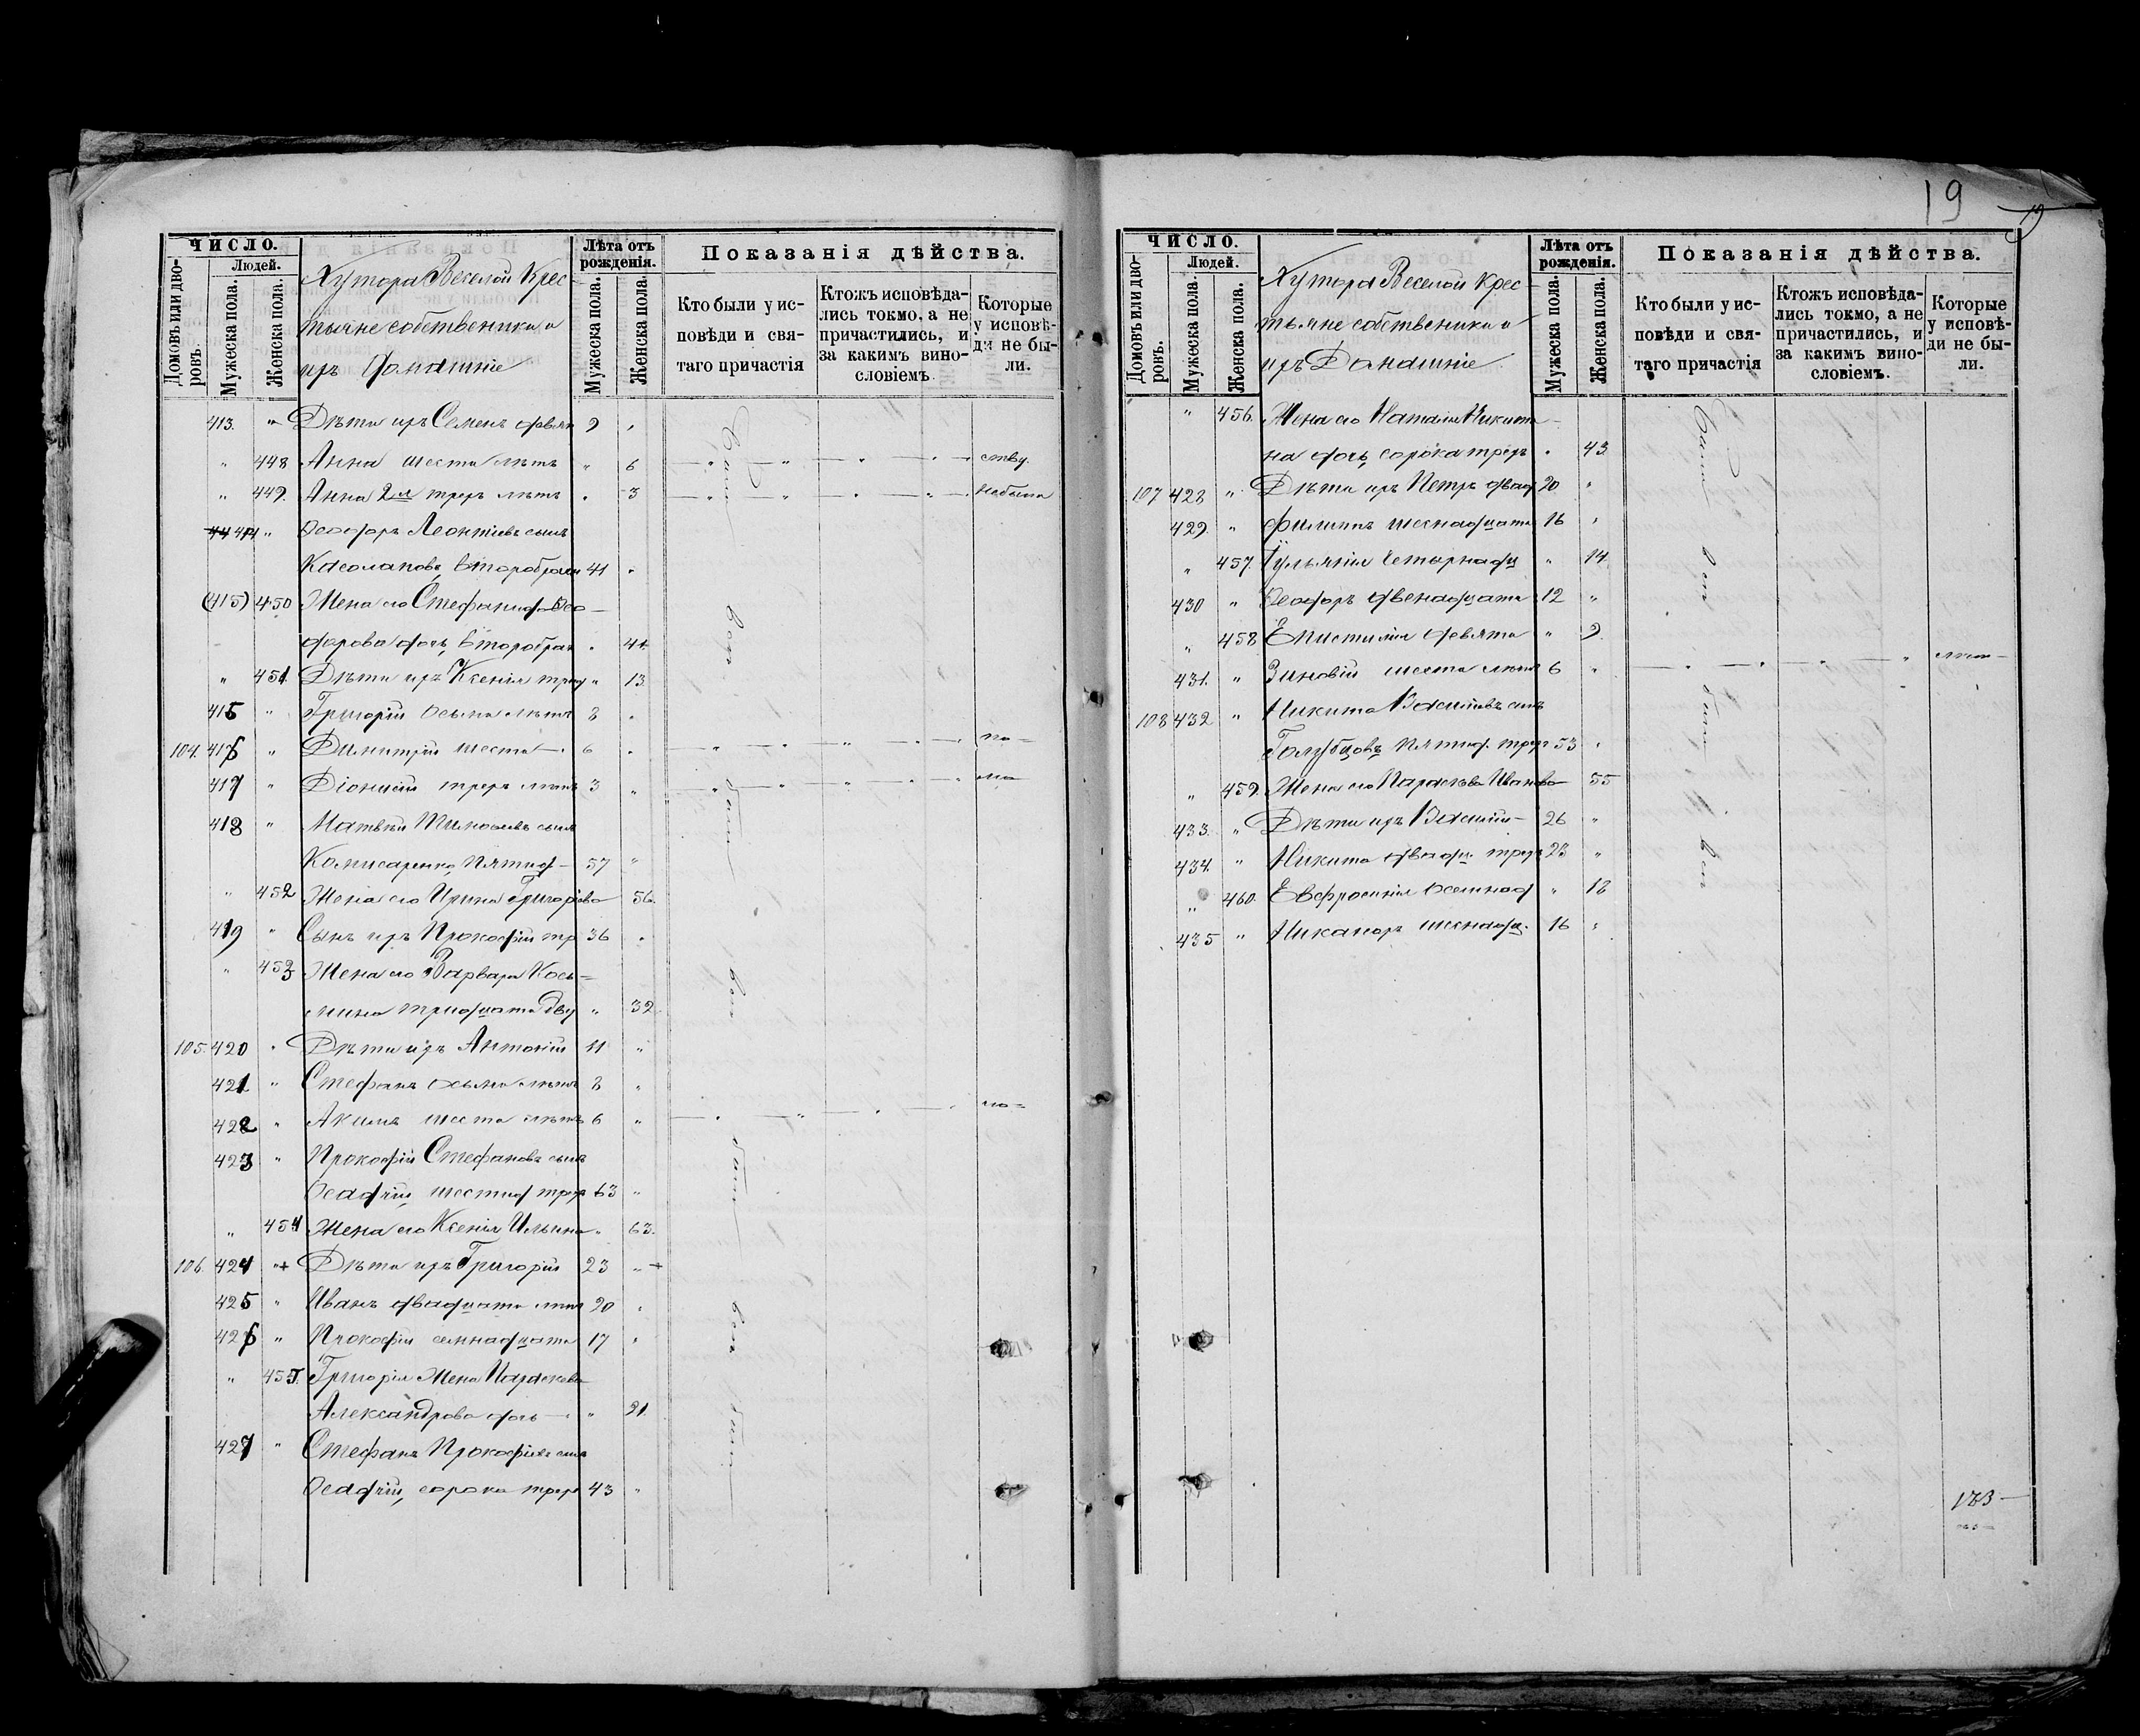 19
19
ЧИСЛО.
Домовъ или дворовъ.
Людей.
Мужеска пола.
Женска пола.
Хутора Веселой Крес-
тьяне собственики и
ихъ Домашніе
Лѣта отъ рожденія.
Мужеска пола.
Женска пола.
Показанія дѣйства.
Кто были у ис-
повѣди и свя-
таго причастія
Ктожъ исповѣда-
лись токмо, а не
причастились, и
за какимъ вино-
словіемъ.
Которые
у исповѣ-
ди не бы-
ли.
413. " Дѣти ихъ Семенъ девяти 9 "
" 448 Анна шести лѣтъ " 6
" 449. Анна 2я трехъ лѣтъ " 3
414 " Ѳеодоръ Леонтіевъ сынъ
Касолаповъ, второбрачн 41 "
(415) 450 Жена его Стефанида Ѳео-
дорова дочь, второбрач " 41
" 451. Дѣти ихъ Ксенія трин " 13
415 " Григорій осьми лѣтъ 8 "
104. 416 " Димитрій шести 6 "
417 " Діонисій трехъ лѣтъ 3 "
418 " Матвѣй Тимофеевъ сынъ
Комисаренко, пятид- 57 "
" 452 Жена его Ирина Григоріева 56.
419 " Сынъ ихъ Прокофій тр 36 "
" 453 Жена его Варвара Кось-
мина тридцати дву " 32
105. 420 " Дѣти ихъ Антоній 11 "
421 " Стефанъ осьми лѣтъ 8 "
422 " Акимъ шести лѣтъ 6 "
423 " Прокофій Стефановъ сынъ
Осадчій, шестид трех 63 "
" 454 Жена его Ксенія Ильина " 63.
106. 424 "+ Дѣти ихъ Григорій 23 "
425 " Иванъ двадцати лѣтъ 20 "
426 " Прокофій семнадцати 17 "
" 455. Григорія Жена Параскева
Александрова дочь " 21.
427 " Стефанъ Прокофіевъ сынъ
Осадчій, сорока трехъ 43 "
Были
вси
были
вси
были
вси
были
ЧИСЛО.
Домовъ или дворовъ.
Людей.
Мужеска пола.
Женска пола.
Хутора Веселой Крес-
тьяне собственики и
ихъ Домашніе
Лѣта отъ рожденія.
Мужеска пола.
Женска пола.
Показанія дѣйства.
Кто были у ис-
повѣди и свя-
таго причастія
Ктожъ исповѣда-
лись токмо, а не
причастились, и
за какимъ вино-
словіемъ.
Которые
у исповѣ-
ди не бы-
ли.
" 456. Жена его Наталія Никити-
на дочь, сорока трехъ " 43
107 428 " Дѣти ихъ Петръ двад 20 "
429. " Филиппъ шеснадцати 16 "
" 457 Іульянія четырнадц " 14
430 " Ѳеодоръ двенадцати 12 "
" 458 Епистимія девяти " 9.
431. " Зиновій шести лѣтъ 6 "
108 432 " Никита Васильевъ сынъ
Голубцовъ, пятид. трех 53 "
" 459. Жена его Параскева Иванова 55
433. " Дѣти ихъ Василій 26 "
434. " Никита двадц. трехъ 23 "
" 460. Евфросинія осемнад " 18
435 " Никаноръ шеснадц. 16 "
Были
вси
были
вси
183